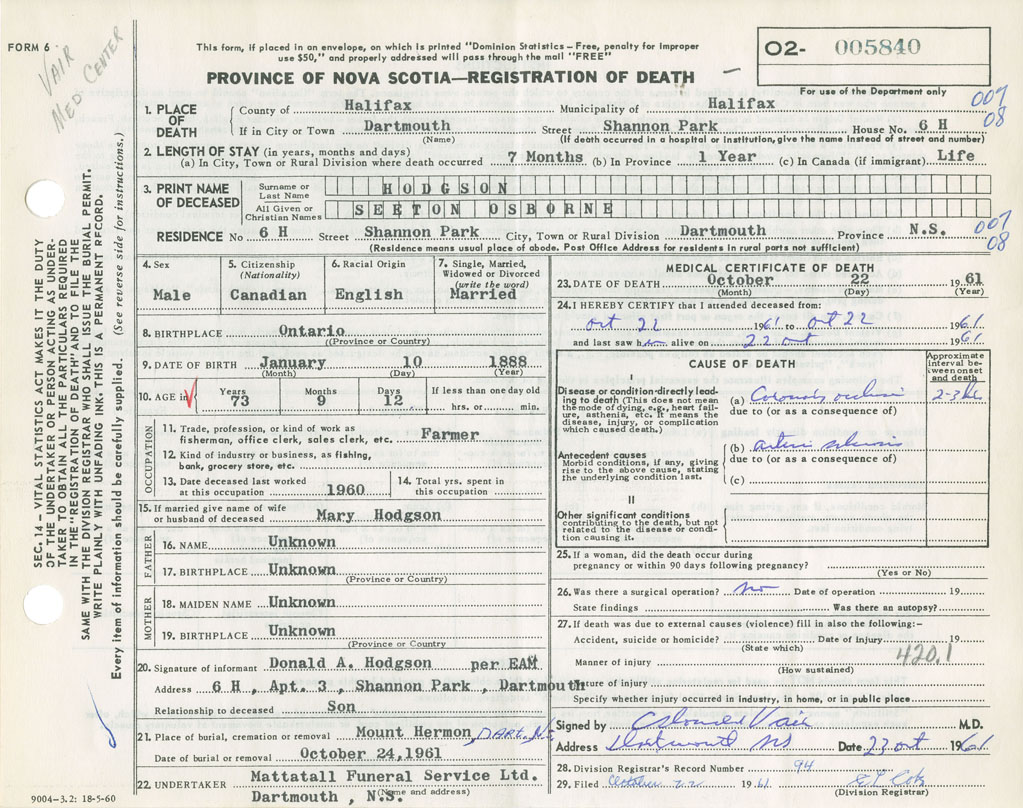 FORM 6
VAIR
MED CENTER
This form, if placed in an envelope, on which is printed "Dominion Statistics – Free, penalty for improper
use $50," and properly addressed will pass through the mail "FREE"
PROVINCE OF NOVA SCOTIA—REGISTRATION OF DEATH
O2- 005840
For use of the Department only
007
08
1. PLACE OF DEATH
County of Halifax Municipality of Halifax
If in City or Town Dartmouth Street Shannon Park House No. 6 H
(Name) (If death occurred in a hospital or institution, give the name instead of street and number)
2. LENGTH OF STAY (in years, months and days)
(a) In City, Town or Rural Division where death occurred 7 Months (b) In Province 1 Year (c) In Canada (if immigrant) Life
3. PRINT NAME OF DECEASED
Surname or Last Name HODGSON
All Given or Christian Names SEETON OSBORNE
RESIDENCE No 6 H Street Shannon Park City, Town or Rural Division Dartmouth Province N.S. 007
08
(Residence means usual place of abode. Post Office Address for residents in rural parts not sufficient)
4. Sex
Male
5. Citizenship
(Nationality)
Canadian
6. Racial Origin
English
7. Single, Married,
Widowed or Divorced
(write the word)
Married
8. BIRTHPLACE Ontario
(Province or Country)
9. DATE OF BIRTH January 10 1888
(Month) (Day) (Year)
10. AGE in
Years Months Days If less than one day old
73 9 12 hrs. or min.
OCCUPATION
11. Trade, profession, or kind of work as
fisherman, office clerk, sales clerk, etc. Farmer
12. Kind of industry or business, as fishing,
bank, grocery store, etc.
13. Date deceased last worked
at this occupation 1960
14. Total yrs. spent in
this occupation
15. If married give name of wife
or husband of deceased Mary Hodgson
FATHER
16. NAME Unknown
17. BIRTHPLACE Unknown
(Province or Country)
MOTHER
18. MAIDEN NAME Unknown
19. BIRTHPLACE Unknown
(Province or Country)
20. Signature of informant Donald A. Hodgson per EAM
Address 6 H , Apt. 3 , Shannon Park , Dartmouth
Relationship to deceased Son
21. Place of burial, cremation or removal Mount Hermon, DART. N.S.
Date of burial or removal October 24,1961
22. UNDERTAKER Mattatall Funeral Service Ltd.
(Name and address)
Dartmouth , N.S.
MEDICAL CERTIFICATE OF DEATH
23. DATE OF DEATH October 22 19 61
(Month) (Day) (Year)
24. I HEREBY CERTIFY that I attended deceased from:
Oct 22 1961 to Oct 22 1961
and last saw him alive on 22 Oct 1961
CAUSE OF DEATH
Approximate
interval be-
tween onset
and death
I
Disease or condition directly lead-
ing to death (This does not mean
the mode of dying, e.g., heart fail-
ure, asthenia, etc. It means the
disease, injury, or complication
which caused death.)
(a) Coronary occlusion
2-3 hr
due to (or as a consequence of)
Antecedent causes
Morbid conditions, if any, giving
rise to the above cause, stating
the underlying condition last.
(b)
due to (or as a consequence of)
(c)
II
Other significant conditions
contributing to the death, but not
related to the disease or condi-
tion causing it.
25. If a woman, did the death occur during
pregnancy or within 90 days following pregnancy?
(Yes or No)
26. Was there a surgical operation? No Date of operation 19
State findings Was there an autopsy?
27. If death was due to external causes (violence) fill in also the following:–
Accident, suicide or homicide? Date of injury 19
(State which)
420.1
Manner of injury
(How sustained)
Nature of injury
Specify whether injury occurred in industry, in home, or in public place
Signed by Vair M.D.
Address Dartmouth NS Date 23 Oct 1961
28. Division Registrar's Record Number 94
29. Filed October 19 61
(Division Registrar)
SEC. 14 – VITAL STATISTICS ACT MAKES IT THE DUTY
OF THE UNDERTAKER OR PERSON ACTING AS UNDER-
TAKER TO OBTAIN ALL THE PARTICULARS REQUIRED
IN THE "REGISTRATION OF DEATH" AND TO FILE THE
SAME WITH THE DIVISION REGISTRAR WHO SHALL ISSUE THE BURIAL PERMIT.
WRITE PLAINLY WITH UNFADING INK. THIS IS A PERMANENT RECORD.
Every item of information should be carefully supplied. (See reverse side for instructions.)
9004–3.2: 18-5-60